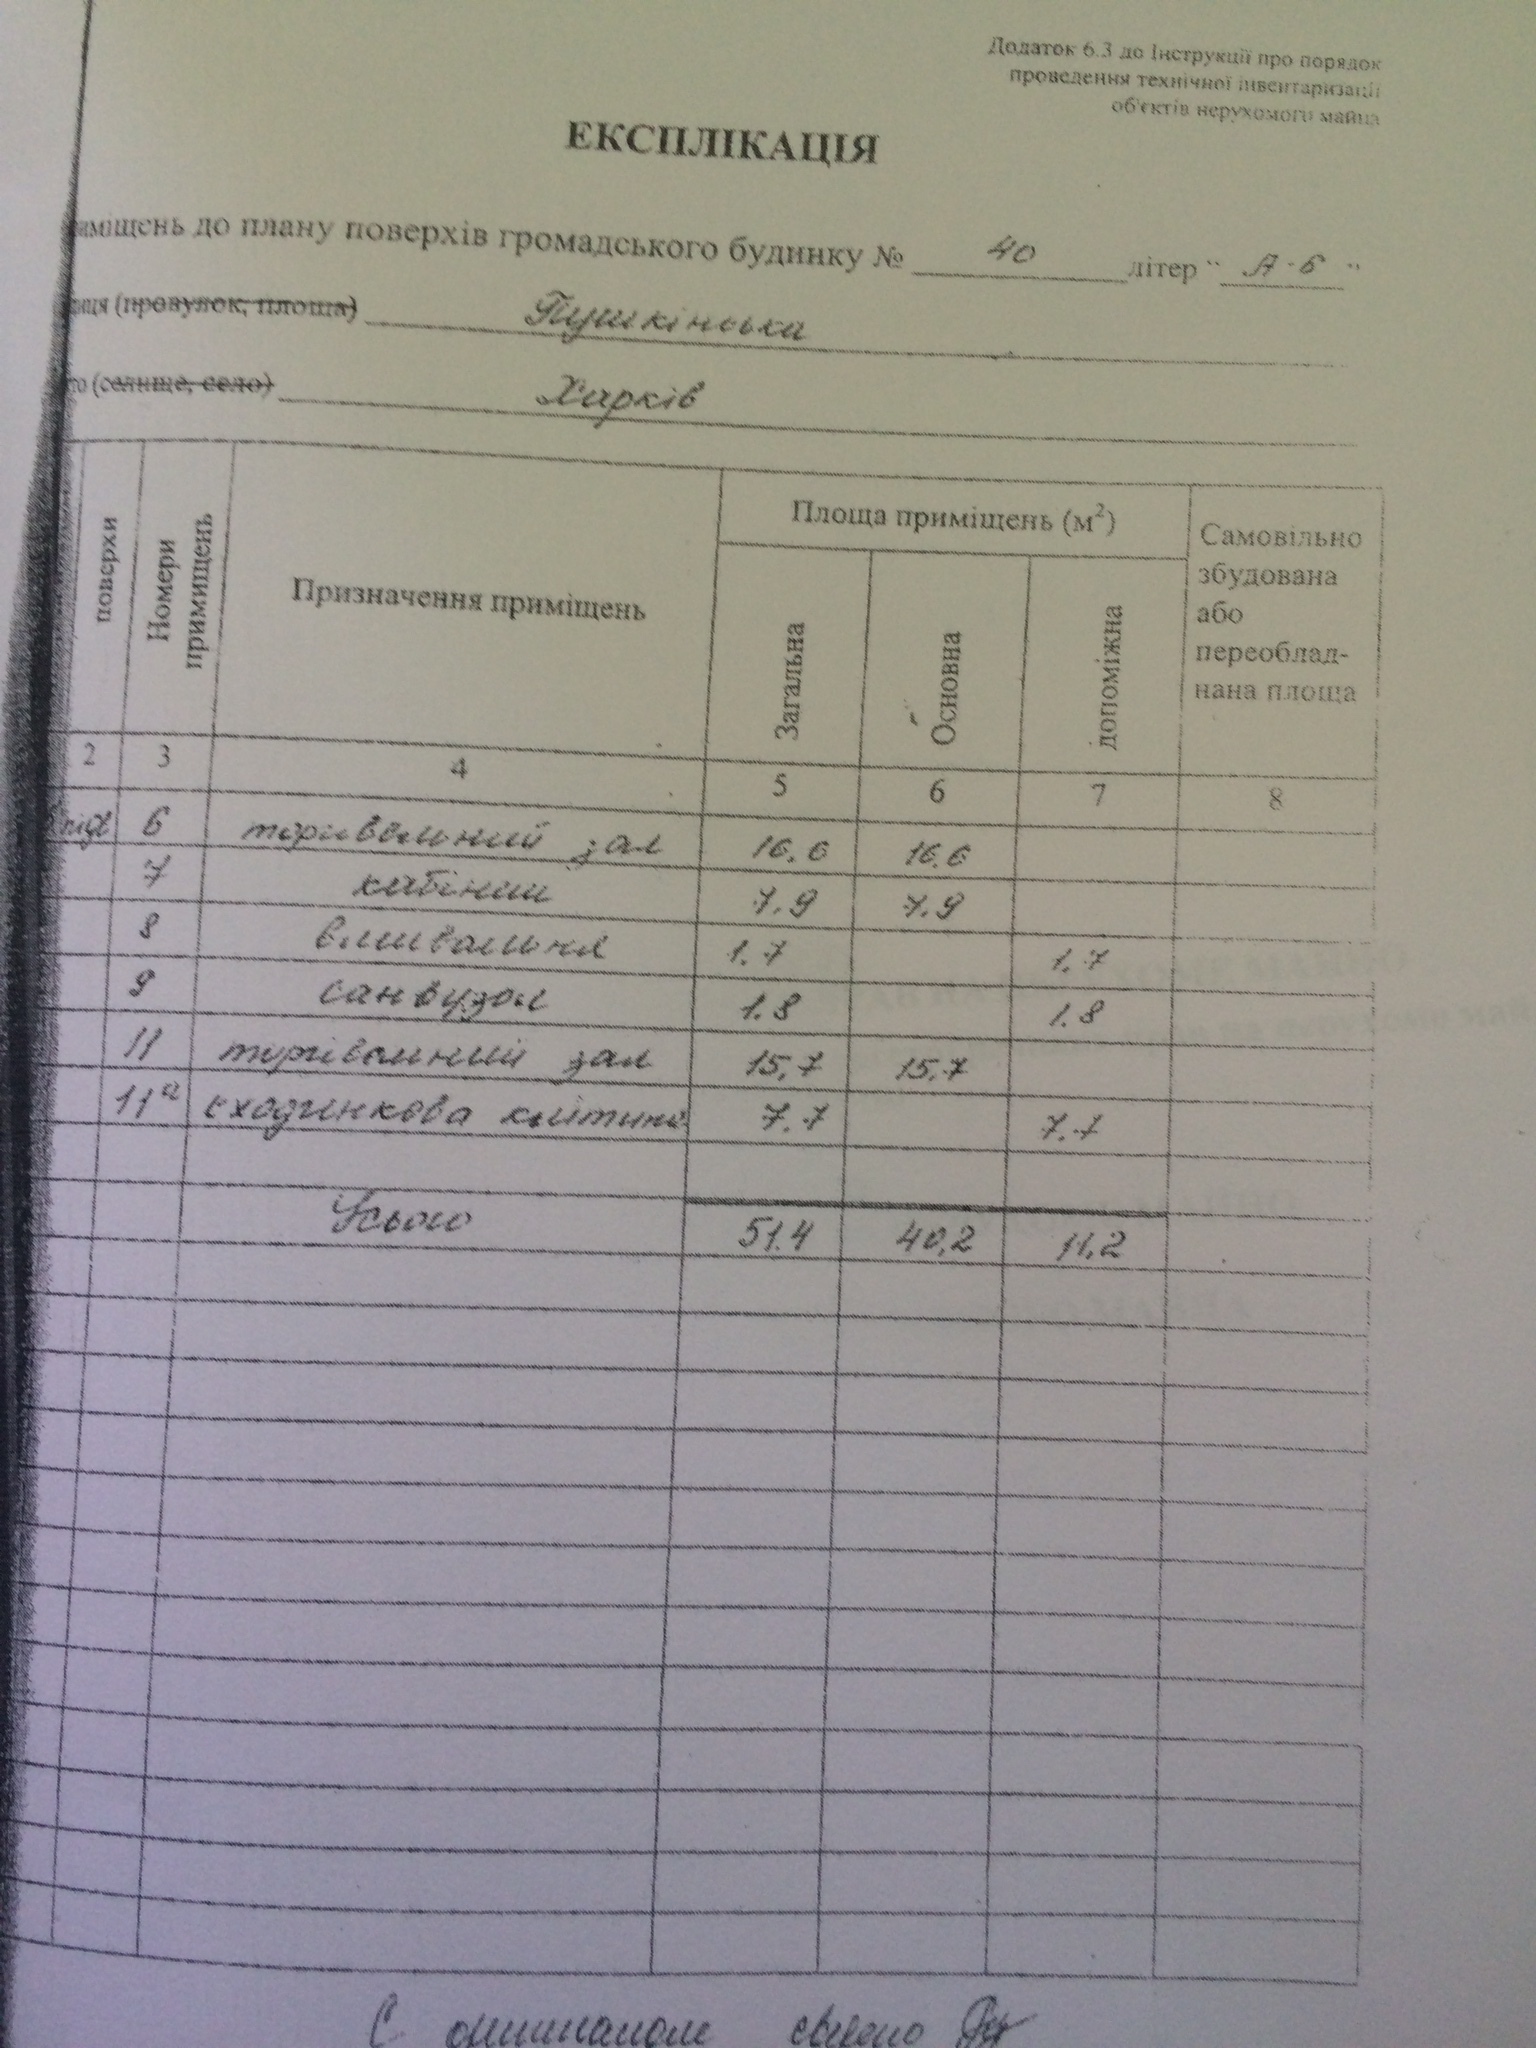 Додаток 6.3 до Інструкції про порядок
проведення технічної інвентаризації
об'єктів нерухомого майна
ЕКСПЛІКАЦІЯ
иміщень до плану поверхів громадського будинку № 40 літер " А-6 "
иця (провулок, площа) Пушкінська
то (селище, село) Харків
поверхи
Номери примищень
Призначення приміщень
Площа приміщень (м²)
Загальна
Основна
допоміжна
Самовільно
збудована
або
переоблад-
нана площа
2 3 4 5 6 7 8
підв 6 торгівельний зал 16.6 16.6
7 кабінет 7.9 7.9
8 вмивальня 1.7 1.7
9 санвузол 1.8 1.8
11 торгівельний зал 15,7 15,7
11а сходинкова клітина 7.7 7.7
Усього 51.4 40,2 11.2
С оригиналом сверено